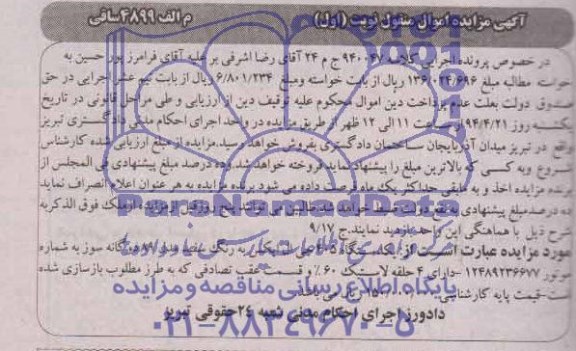 آگهی مزایده اموال منقول نوبت (اول) م الف ۴۸۹۹ ساقی
در خصوص پرونده اجرایی کلاسه ۹۴۰۰۴۷ ج م ۲۴ آقای رضا اشرفی بر علیه آقای فرامرز پور حسین به
خواسته مطالبه مبلغ ۱۳۶/۰۲۴/۶۹۶ ریال از بابت خواسته ومبلغ ۶/۸۰۱/۲۳۴ ریال از بابت نیم عشر اجرایی در حق
صندوق دولت بعلت عدم پرداخت دین اموال محکوم علیه توقیف دین از ارزیابی و طی مراحل قانونی در تاریخ
یکشنبه روز ۹۴/۴/۲۱ از ساعت ۱۱ الی ۱۲ ظهر از طریق مزایده در واحد اجرای احکام مدنی دادگستری تبریز
واقع در تبریز میدان آذربایجان ساختمان دادگستری بفروش خواهد رسید.مزایده از مبلغ ارزیابی شده کارشناس
شروع وبه کسی که بالاترین مبلغ را پیشنهاد نماید فروخته خواهد شد. ده درصد مبلغ پیشنهادی فی المجلس از
برنده مزایده اخذ و به مابقی حداکثر یک ماه فرصت داده می شود برنده مزایده به هر عنوان اعلام انصراف نماید
ده درصد مبلغ پیشنهادی به نفع دولت ضبط خواهد شد.طالبین می توانند پنج روز قبل از مزایده از ملک فوق الذکر به
شرح ذیل با هماهنگی این واحد بازدید نمایند.ج ۹/۱۷
مورد مزایده عبارت است از: یکدستگاه ۴۰۵ جی ال ایکس به رنگ مدل دوگانه سوز به شماره
موتور ۱۲۴۸۹۲۳۶۶۷۷ -دارای ۴ حلقه لاستیک ۶۰٪ و قسمت عقب تصادفی که به طرز مطلوب بازسازی شده
است-قیمت پایه کارشناسی ریال می باشد.
دادورز اجرای احکام مدنی شعبه ۲۴ حقوقی تبریز
ParsNamadData
پایگاه اطلاع رسانی مناقصه و مزایده
۰۲۱-۸۸۳۴۹۶۷۰-۵